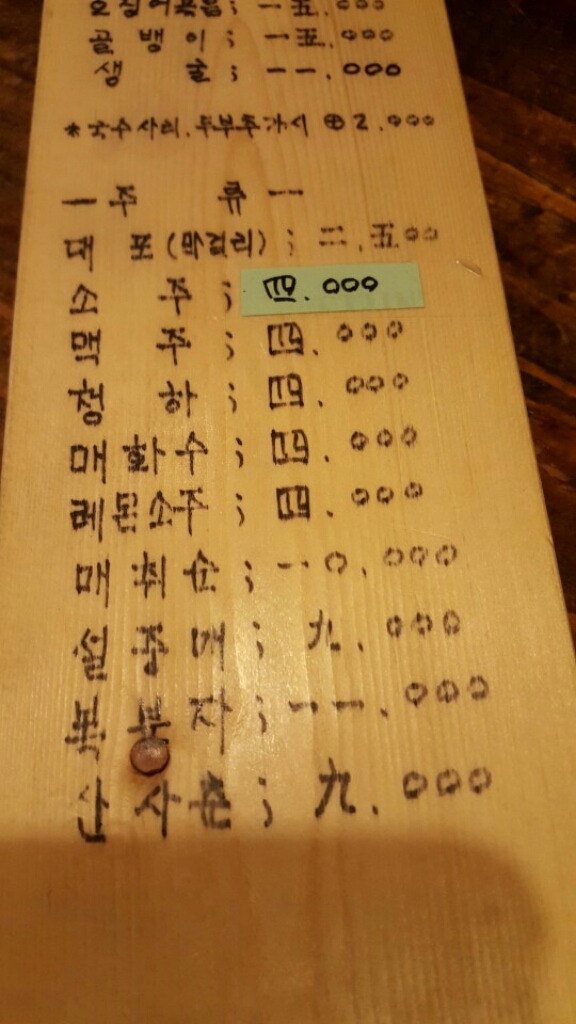 오징어볶음; 一五.000
골뱅이; 一五.000
생굴; 一一.000
*국수사리.두부추가시 ⊕2.000
一주 류一
대 포(막걸리); 二.五00
소 주; 四.000
맥 주; 四.000
청 하; 四.000
매화수; 四.000
레몬소주; 四.000
매취순; 一0.000
설중매; 九.000
복분자; 一一.000
산사춘; 九.000